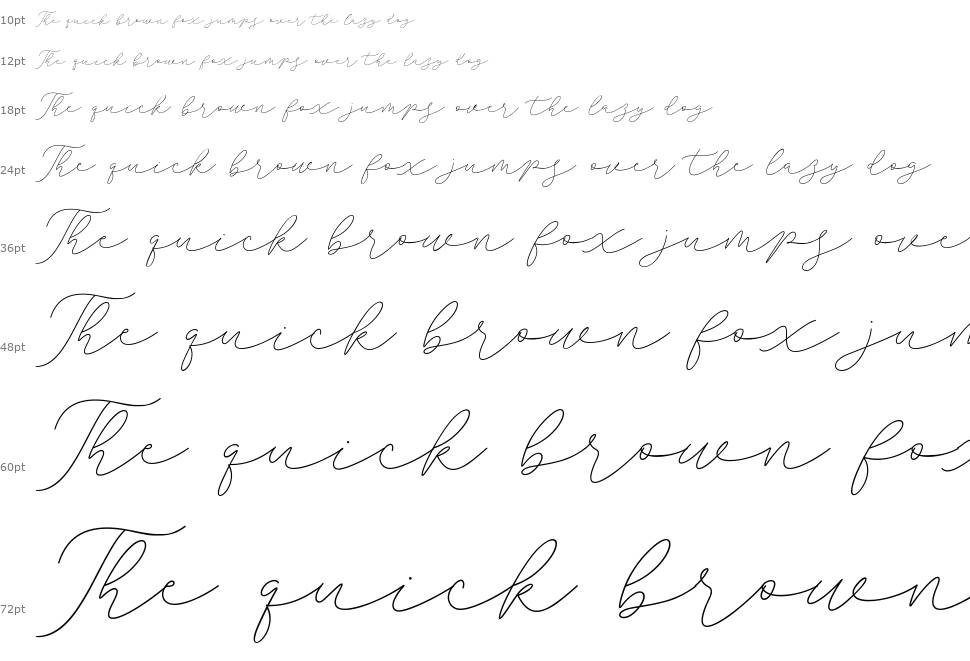 10pt The quick brown fox jumps over the lazy dog
12pt The quick brown fox jumps over the lazy dog
18pt The quick brown fox jumps over the lazy dog
24pt The quick brown fox jumps over the lazy dog
36pt The quick brown fox jumps ove
48pt The quick brown fox jum
60pt The quick brown fox
72pt The quick brown